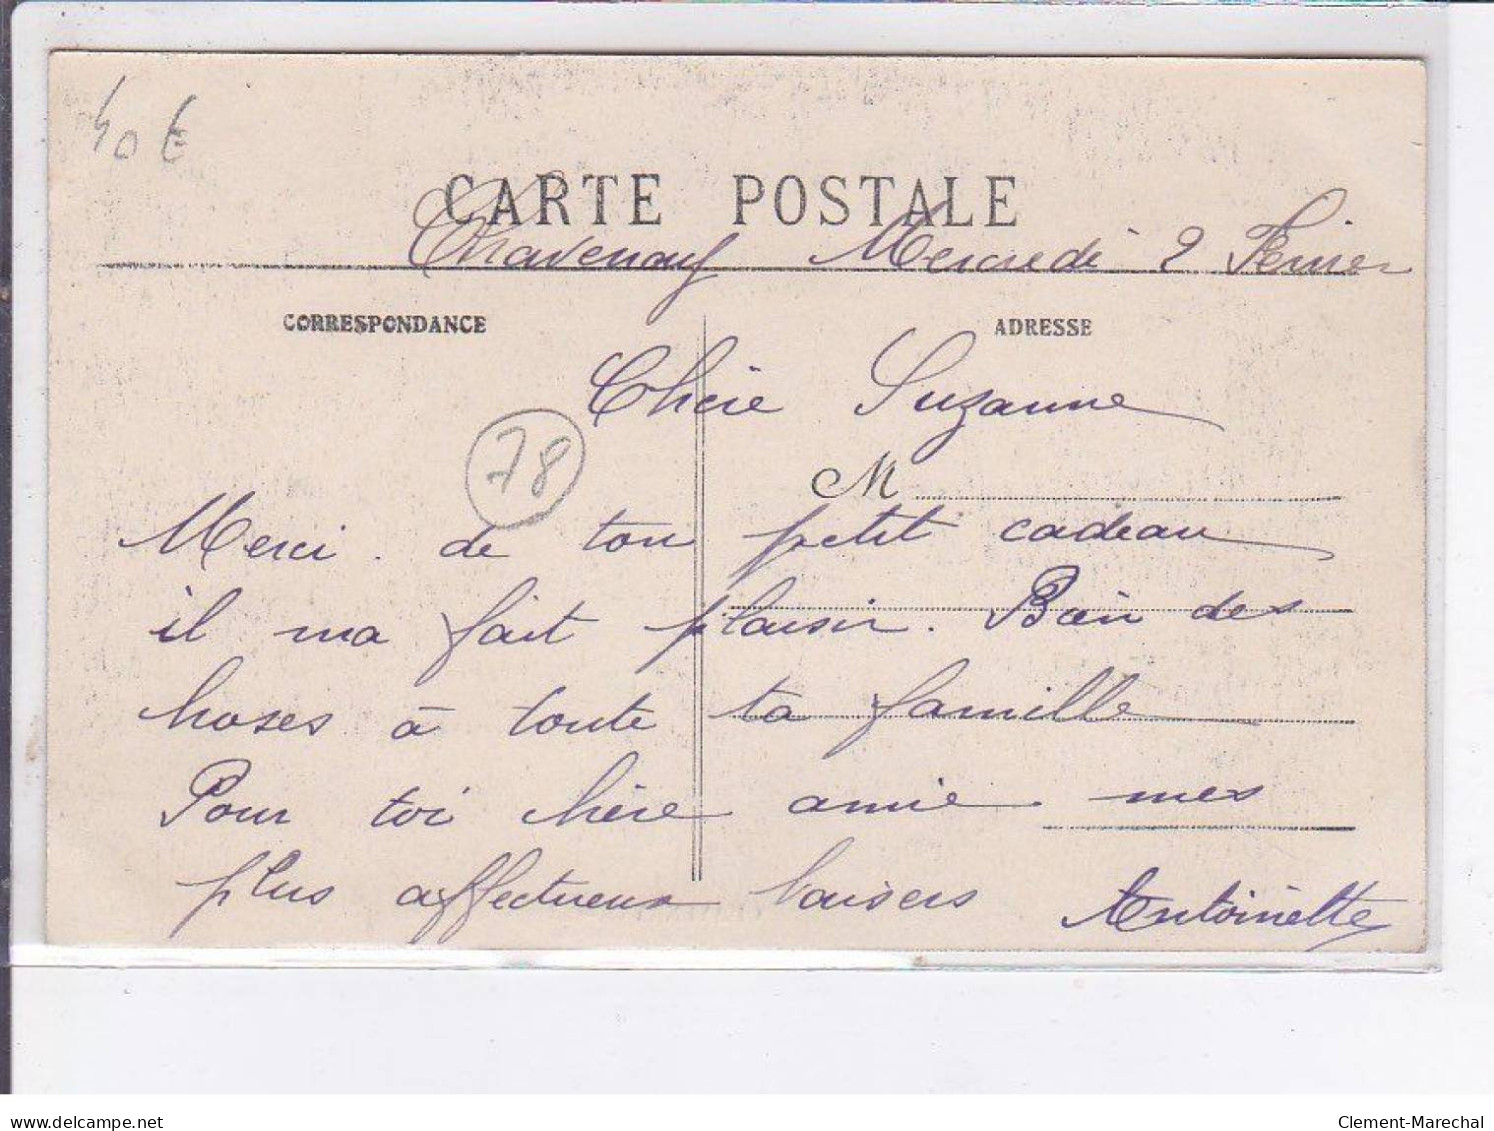 40 €
CARTE POSTALE
Chavenay Mercredi 2 Fevrier
CORRESPONDANCE ADRESSE
Chère Suzanne
78
M
Merci de ton petit cadeau
il ma fait plaisir. Bien des
choses à toute ta famille
Pour toi chère amie mes
plus affectueux baisers Antoinette
delcampe.net Clement-Marechal